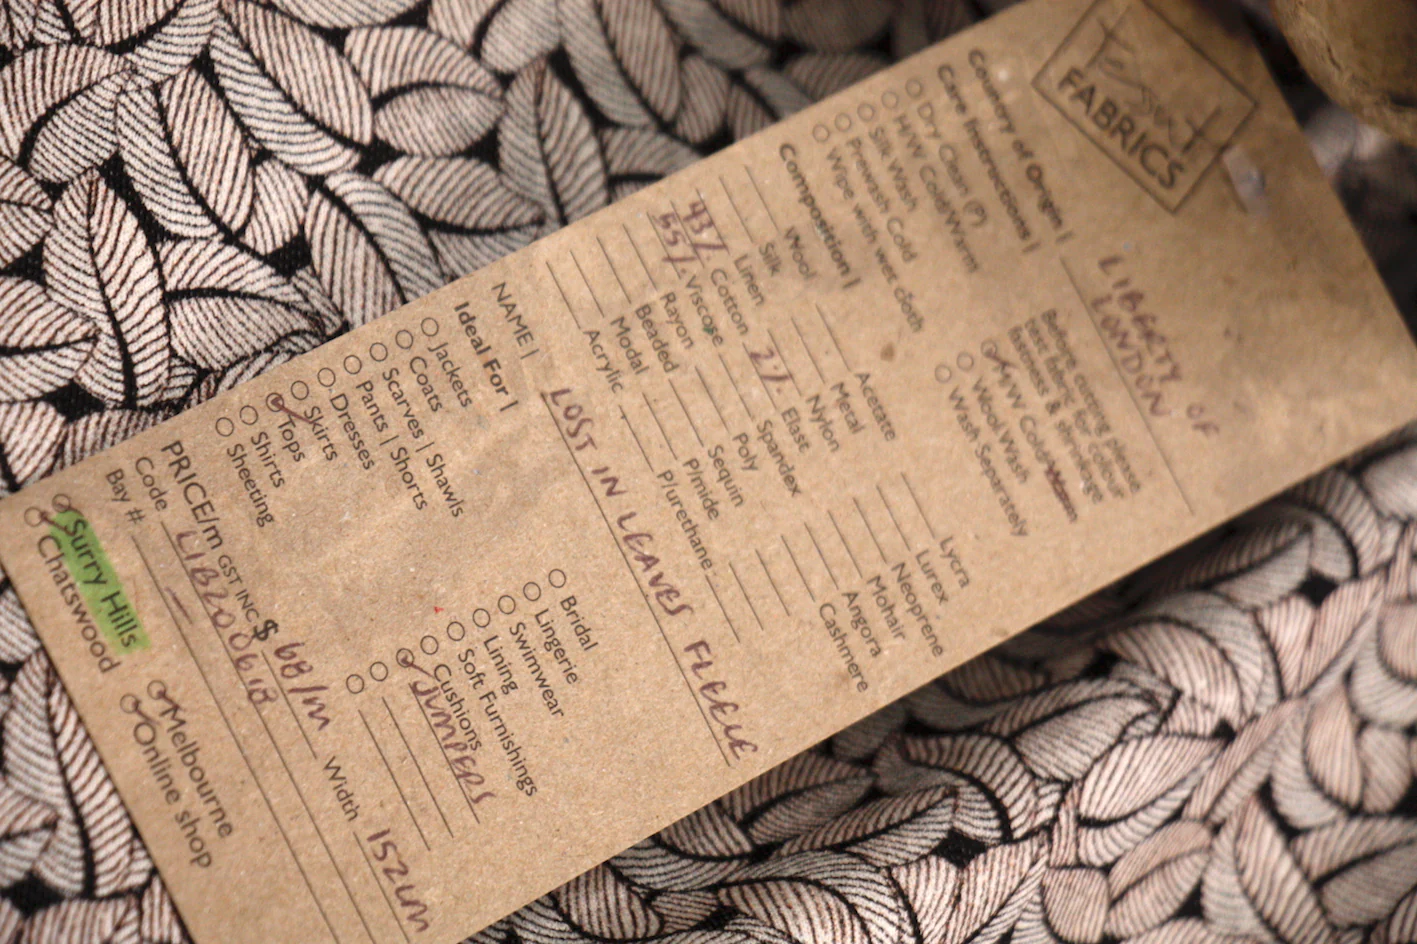 Tessuti
FABRICS
Country of Origin | LIBERTY OF
LONDON
Care Instructions |
Before cutting please
test fabric for colour
fastness & shrinkage
Dry Clean (P)
H/W Cold/Warm
Silk Wash
Prewash Cold
Wipe with wet cloth
H/W Cold/Warm
Wool Wash
Wash Separately
Composition |
Wool Acetate Lycra
Silk Metal Lurex
Linen Nylon Neoprene
43% Cotton 2% Elast Mohair
55% Viscose Spandex Angora
Rayon Poly Cashmere
Beaded Sequin
Modal P/mide
Acrylic P/urethane
NAME | LOST IN LEAVES FLEECE
Ideal For |
Jackets Bridal
Coats Lingerie
Scarves | Shawls Swimwear
Pants | Shorts Lining
Dresses Soft Furnishings
Skirts Cushions
Tops JUMPERS
Shirts
Sheeting
PRICE/m GST INC $ 68/m Width 152cm
Code LIB200618
Bay #
Surry Hills Melbourne
Chatswood Online shop